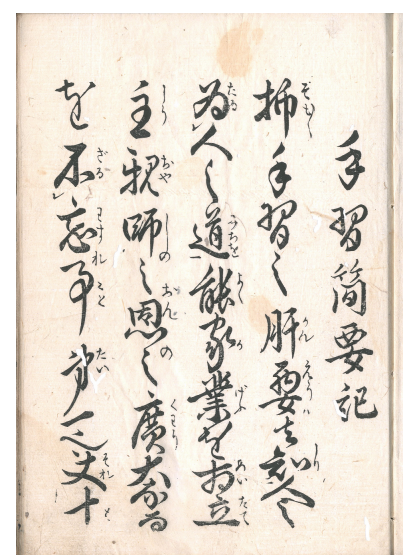 手習簡要記
抑手習之肝要者知人之
為人之道能家業を相立
主親師之恩之廣大なる
を不忘事第一也夫十